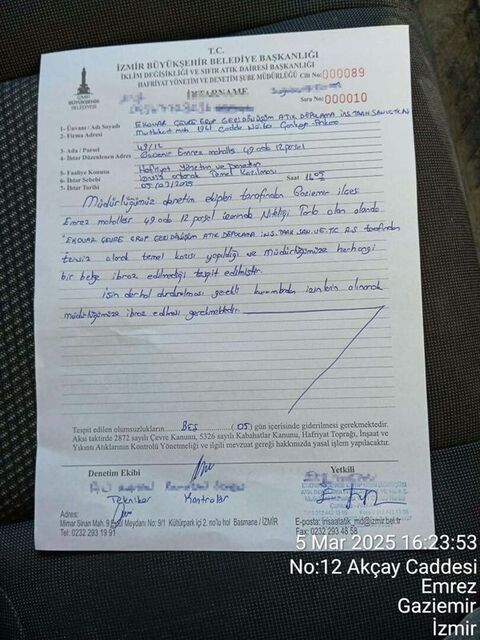 T.C.
İZMİR BÜYÜKŞEHİR BELEDİYE BAŞKANLIĞI
İKLİM DEĞİŞİKLİĞİ VE SIFIR ATIK DAİRESİ BAŞKANLIĞI
HAFRİYAT YÖNETİM VE DENETİM ŞUBE MÜDÜRLÜĞÜ Cilt No: 000089
İZMİR
BÜYÜKŞEHİR
BELEDİYESİ
İHTARNAME
Sıra No: 000010
1- Ünvanı / Adı Soyadı EKOVAR ÇEVRE GRUP GERİ DÖNÜŞÜM ATIK DEPOLAMA İNŞ. TAAH. SAN. VE TİC
2- Firma Adresi Mutlukent mah. 1961 Cadde No:60 Çankaya-Ankara
3- Ada / Parsel 49/12
4- İhtar Düzenlenen Adres Gaziemir Emrez mahallesi 49 ada 12 parsel
5- Faaliyet Konusu Hafriyat Yönetim ve Denetim
6- İhtar Sebebi İzinsiz olarak Temel Kazılması
7- İhtar Tarihi 05.03/2025 Saat
Müdürlüğümüz denetim ekipleri tarafından Gaziemir ilçesi
Emrez mahallesi 49 ada 12 parsel üzerinde Niteliği Tarla olan alanda
"EKOVAR ÇEVRE GRUP GERİ DÖNÜŞÜM ATIK DEPOLAMA İNŞ. TAAH. SAN. VE TİC A.Ş tarafından
izinsiz olarak temel kazısı yapıldığı ve müdürlüğümüze herhangi
bir belge ibraz edilmediği tespit edilmiştir.
İşin derhal durdurulması gerekli kurumlardan izinlerin alınarak
müdürlüğümüze ibraz edilmesi gerekmektedir.
Tespit edilen olumsuzlukların BEŞ (05) gün içerisinde giderilmesi gerekmektedir.
Aksi taktirde 2872 sayılı Çevre Kanunu, 5326 sayılı Kabahatlar Kanunu, Hafriyat Toprağı, İnşaat ve
Yıkıntı Atıklarının Kontrolü Yönetmeliği ve ilgili mevzuat gereği hakkınızda yasal işlem yapılacaktır.
Denetim Ekibi Yetkili
Tekniker Kontrolör
Adres:
Mimar Sinan Mah. 9 Eylül Meydanı No: 9/1 Kültürpark içi 2. no'lu hol Basmane / İZMİR
Tel: 0232 293 19 91
E-posta: insaatatik_md@izmir.bel.tr
Fax: 0232 293 48 58
5 Mar 2025 16:23:53
No:12 Akçay Caddesi
Emrez
Gaziemir
İzmir